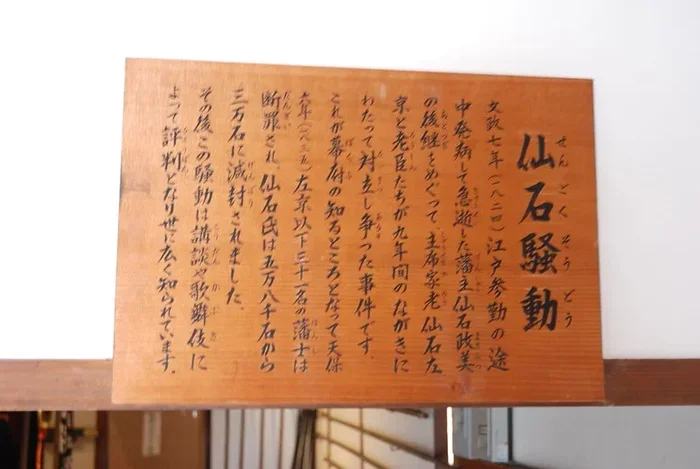 仙石騒動
文政七年(一八二四)江戸参勤の途
中発病して急逝した藩主仙石政美
の後継をめぐって、主席家老仙石左
京と老臣たちが九年間のながきに
わたって対立し争った事件です。
これが幕府の知るところとなって天保
六年(一八三五)左京以下三十一名の藩士は
断罪され、仙石氏は五万八千石から
三万石に減封されました。
その後この騒動は講談や歌舞伎に
よって評判となり世に広く知られています。